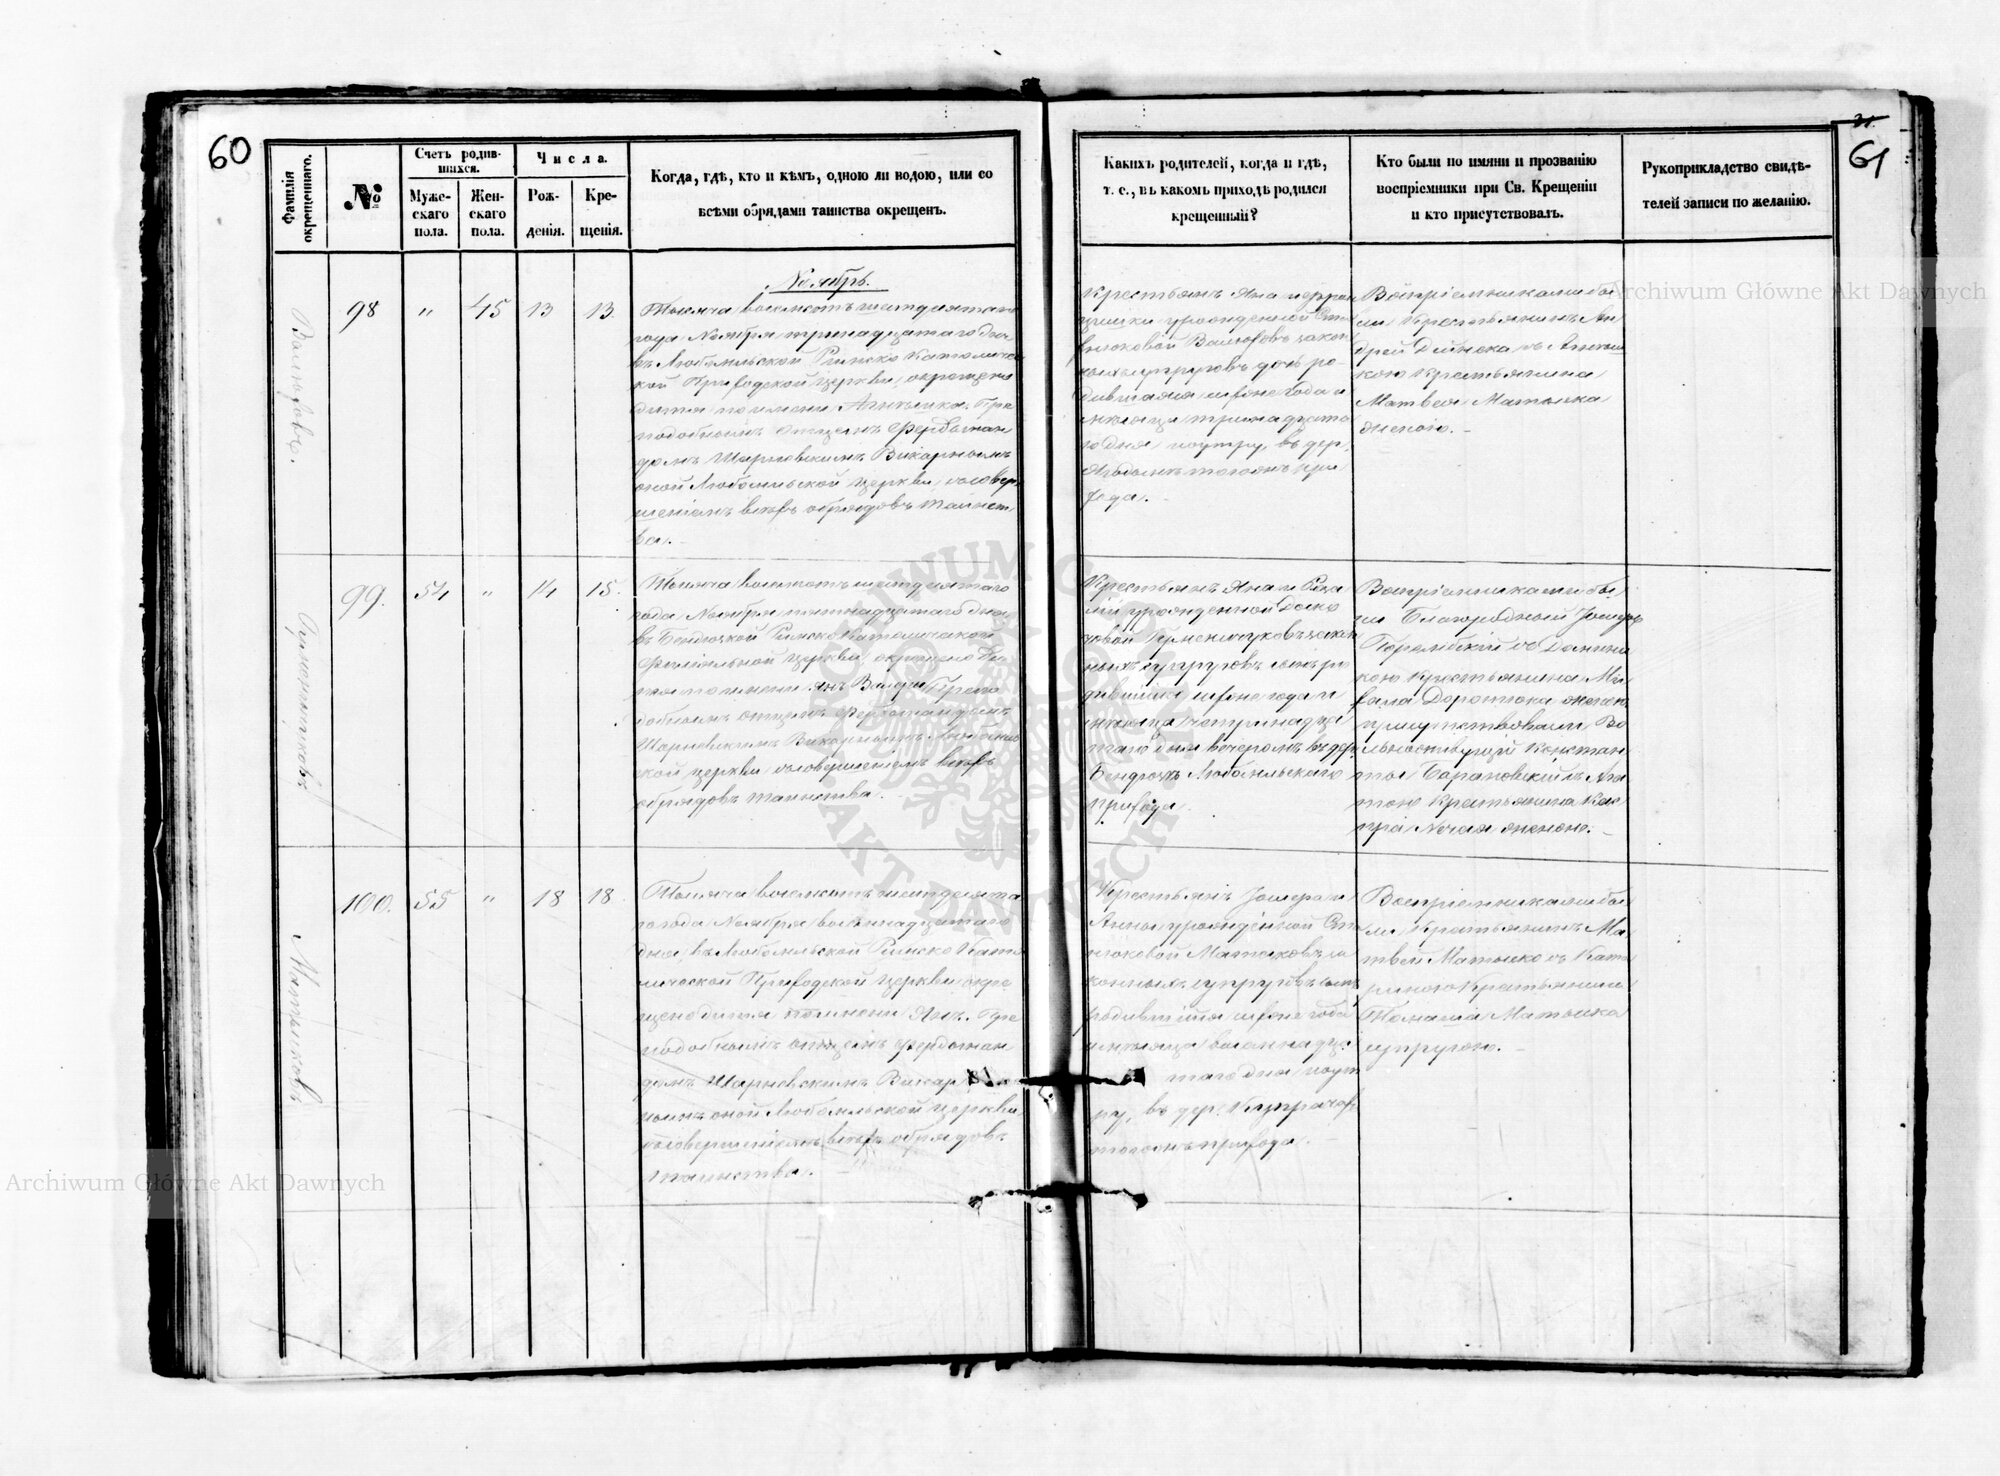 60
Фамилія окрещеннаго.
№
Счетъ родив-
шихся.
Муже-
скаго
пола.
Жен-
скаго
пола.
Числа.
Рож-
денія.
Кре-
щенія.
Когда, гдѣ, кто и кѣмъ, одною ли водою, или со
всѣми обрядами таинства окрещенъ.
Ноябрь.
98
"
45
13
13.
Тысяча восемьсотъ шестдесятаго
года Ноября тринадцатаго дня
въ Любомльской Римско Католичес
кой Приходской церкви, окрещено
дитя по имени Агнешка. Пре
подобнымъ отцемъ Фердынан
домъ Шарневскимъ Викарнымъ
оной Любомльской церкви, совер
шеніемъ всѣхъ обрядовъ таинст
ва.
99.
54
"
14
15.
Тысяча восемьсотъ шестдесятаго
года Ноября пятнадцатаго дня
въ Бендюжской Римско Католической
Филіальной церкви, окрещено Ди
тя по имени Янъ Препо
добнымъ отцемъ Фердынандомъ
Шарневскимъ Викарнымъ Любомль
ской церкви совершеніемъ всѣхъ
обрядовъ таинства.
100.
55
"
18
18.
Тысяча восемьсотъ шестдесята
го года Ноября восемнадцатаго
дня, въ Любомльской Римско Като
лической Приходской церкви окре
щено дитя по имени Янъ. Пре
подобнымъ отцемъ Фердынан
домъ Шарневскимъ Викар
нымъ оной Любомльской церкви,
совершеніемъ всѣхъ обрядовъ
таинства.
Матысковъ
61
Какихъ родителей, когда и гдѣ,
т. е., въ какомъ приходѣ родился
крещенный?
Кто были по имяни и прозванію
воспріемники при Св. Крещеніи
и кто присутствовалъ.
Рукоприкладство свидѣ-
телей записи по желанію.
Крестьянъ Яна и Фран
цишки урожденной
закон
ныхъ супруговъ дочь ро-
дившаяся сегоже года и
мѣсяца тринадцата
го дня поутру, въ дер.
тогожъ при
хода.
Воспріемниками бы
ли Крестьянинъ Ан
дрей съ Агнеш
кою Крестьянина
Матвея Матыска
женою.
Крестьянъ Яна и
урожденной
закон
ныхъ супруговъ сынъ ро
дившійся сегоже года и
мѣсяца четырнадца
таго дня вечеромъ въ дер.
Бендюжъ Любомльскаго
прихода.
Воспріемниками бы
ли Благородный Іосифъ
съ Домини
кою Крестьянина Ми
хала женою
присутствовали Во
льноживущій Констан
тый Барановскій съ Ага
тою Крестьянина Кас
пра женою.
Крестьянъ Іосифа и
Анны урожденной
Матысковъ за
конныхъ супруговъ сынъ
родившійся сегоже года
и мѣсяца восемнадца
таго дня поут
ру, въ дер.
тогожъ прихода.
Воспріемниками бы
ли Крестьянинъ Ма
твей Матыско съ Кате
риною Крестьянина
Матыска
супругою.
Archiwum Główne Akt Dawnych
Archiwum Główne Akt Dawnych
ARCHIWUM GŁÓWNE AKT DAWNYCH